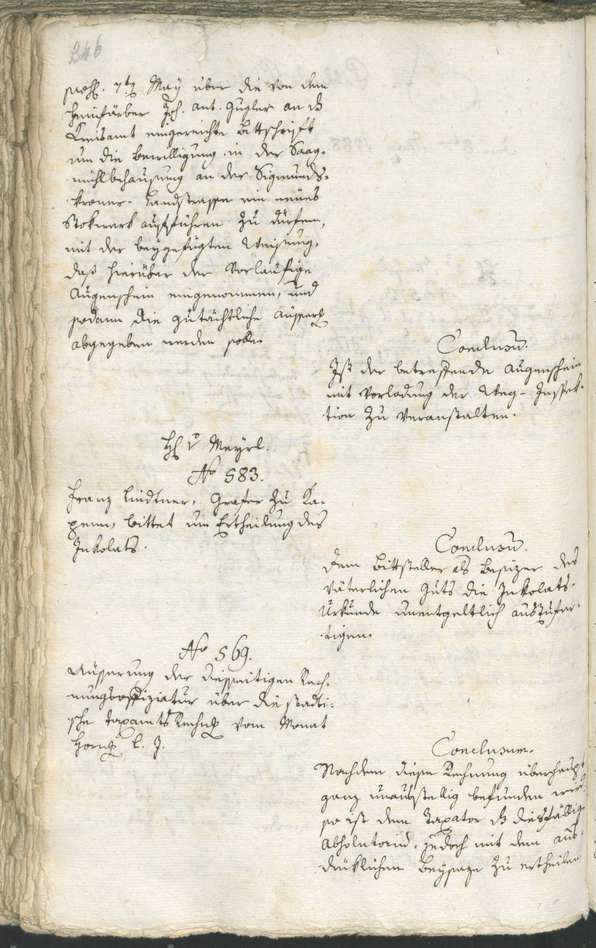 246
prs. 7t May über die von dem
Heimfärber Joh. Ant. Gugler an das
Kreisamt eingereichte Bittschrift
um die Bewilligung in der Saag-
mühlbehausung an der Sigmunds-
kroner-Landstrasse ein neues
Stokwerk aufführen zu dürfen,
mit der beygefügten Weisung,
daß hierüber der vorläufige
Augenschein eingenommen, und
sodann die gutächtliche Äusserg
abgegeben werden solle.
Conclusum.
Ist der betreffende Augenschein
mit Vorladung der Weg-Inspek-
tion zu veranstalten.
H. v Meyrl.
No 583.
Franz Lindtner, Grafer zu Ka-
penn, bittet um Ertheilung des
Inkolats.
Conclusum.
Dem Bittsteller als Besizer des
väterlichen Guts die Inkolats-
Urkunde unentgeltlich auszufer-
tigen.
No 569.
Äusserung der diesseitigen Rech-
nungsoffiziatur über die stadti-
sche Taxamts Rechng vom Monat
Hornug l. J.
Conclusum.
Nachdem diese Rechnung überhaupt
ganz unaustellig befunden wird
so ist dem Taxator das diesfällige
Absolutorium, jedoch mit dem aus-
drüklichen Beysaze zu ertheilen